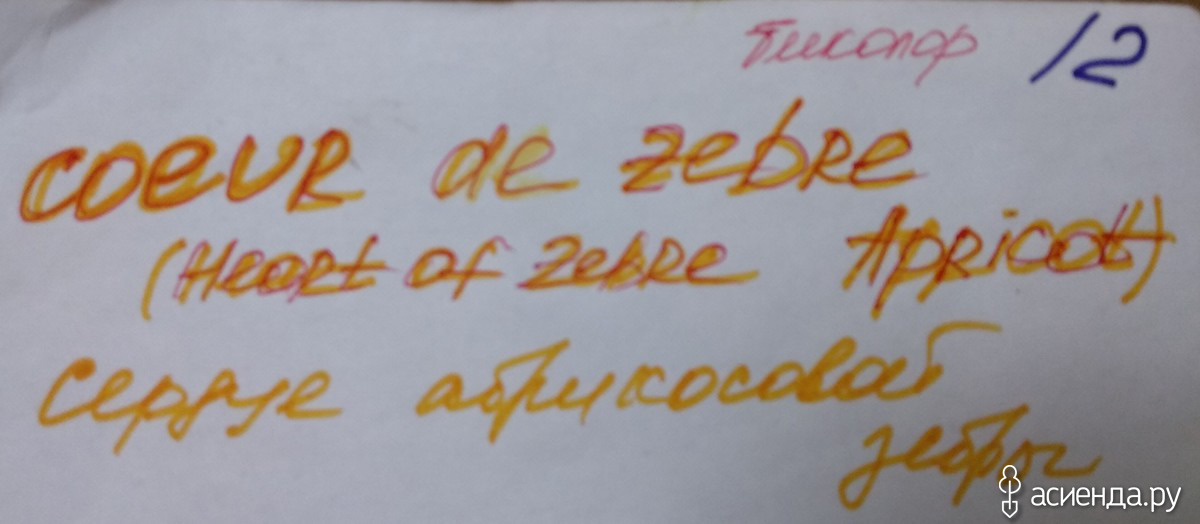 Тиколор 12
COEUR de zebRe
(HeaRt of ZebRe ApRicot)
Сердце абрикосовой
зебры
асиенда.ру